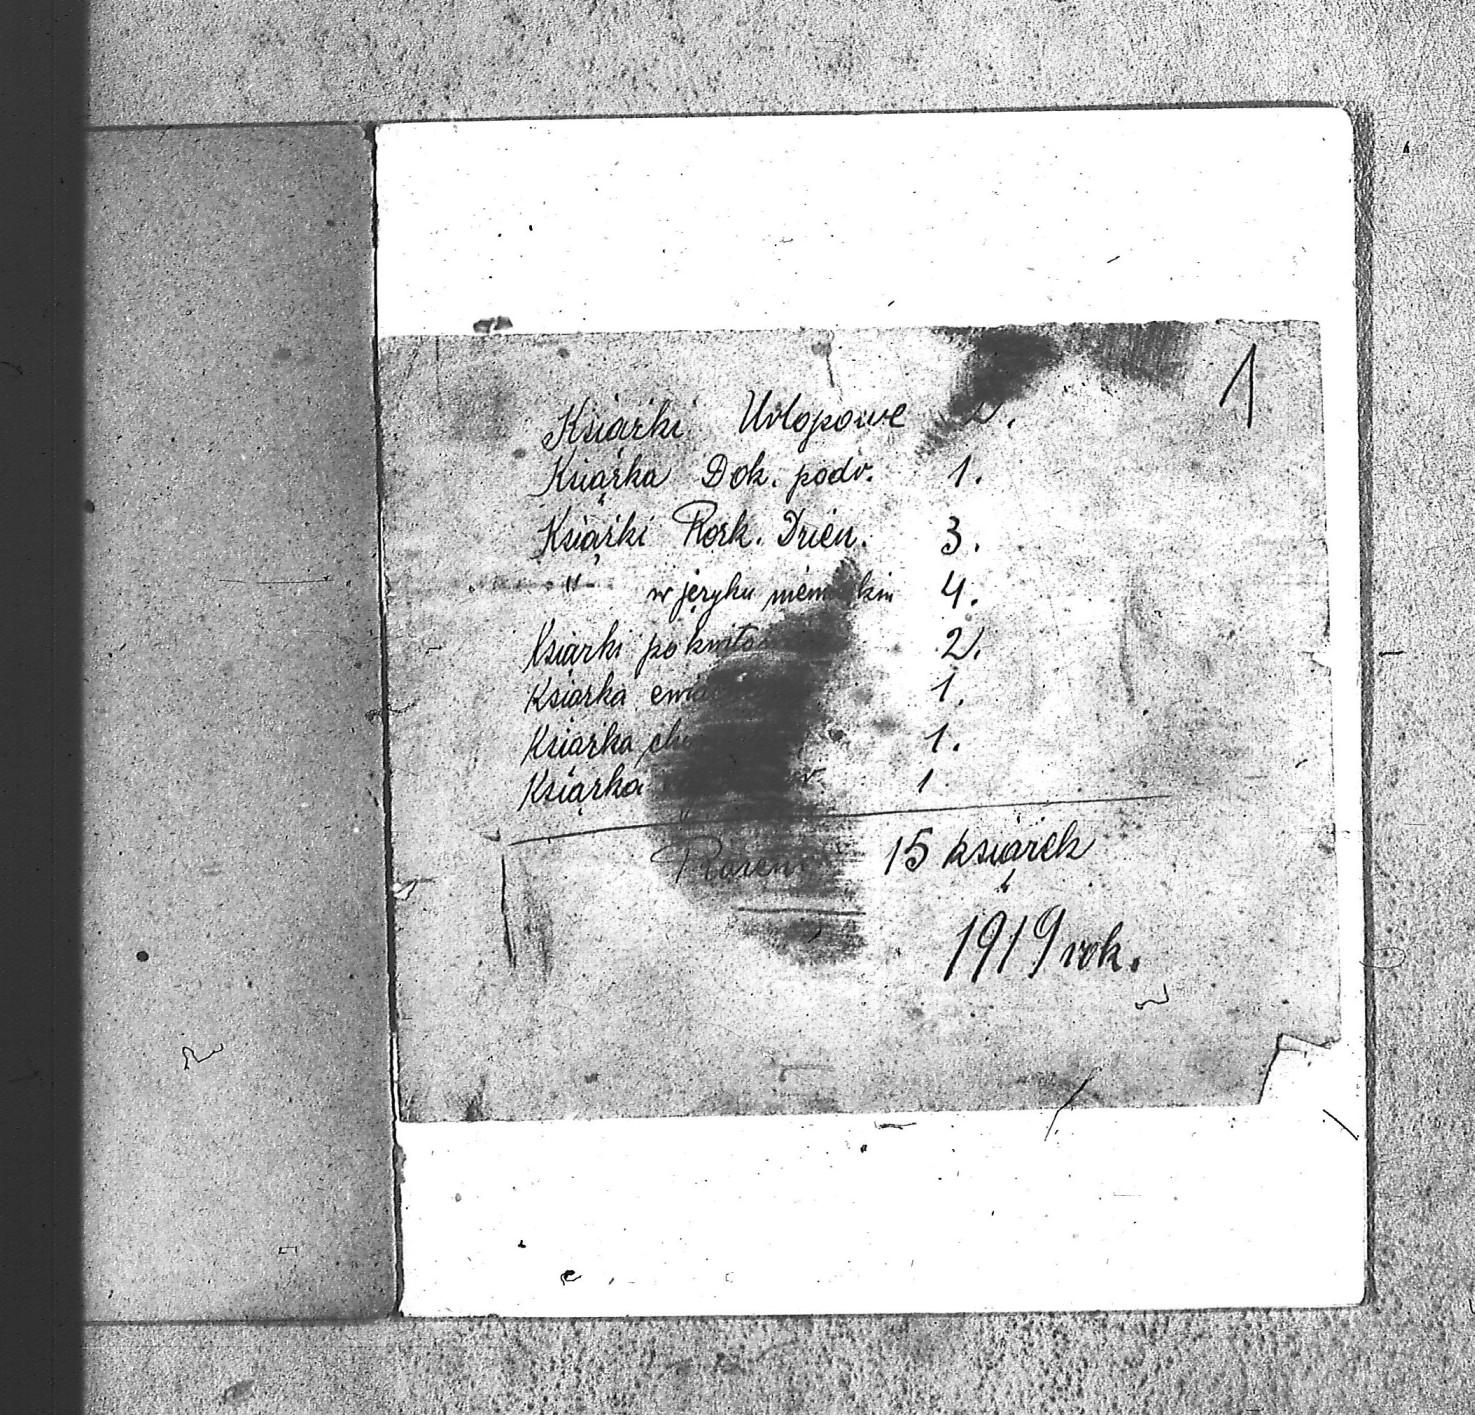 1
Książki Urlopowe 2.
Książka Dok. podr. 1.
Książki Rozk. Dzien. 3.
" w języku 4.
Książki pokwito 2.
Książka 1.
Książka 1.
Książka 1.
Razem 15 książek
1919 rok.